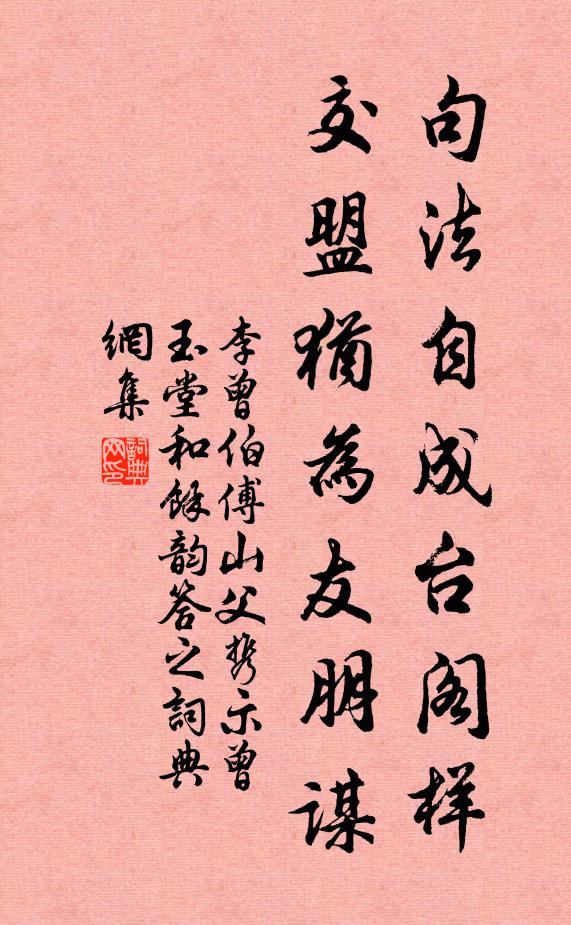 句法自成台阁样
交盟犹為友朋謀
李曾伯傅山父携示曾
玉堂和餘韵答之詞典
網集
詞典網印